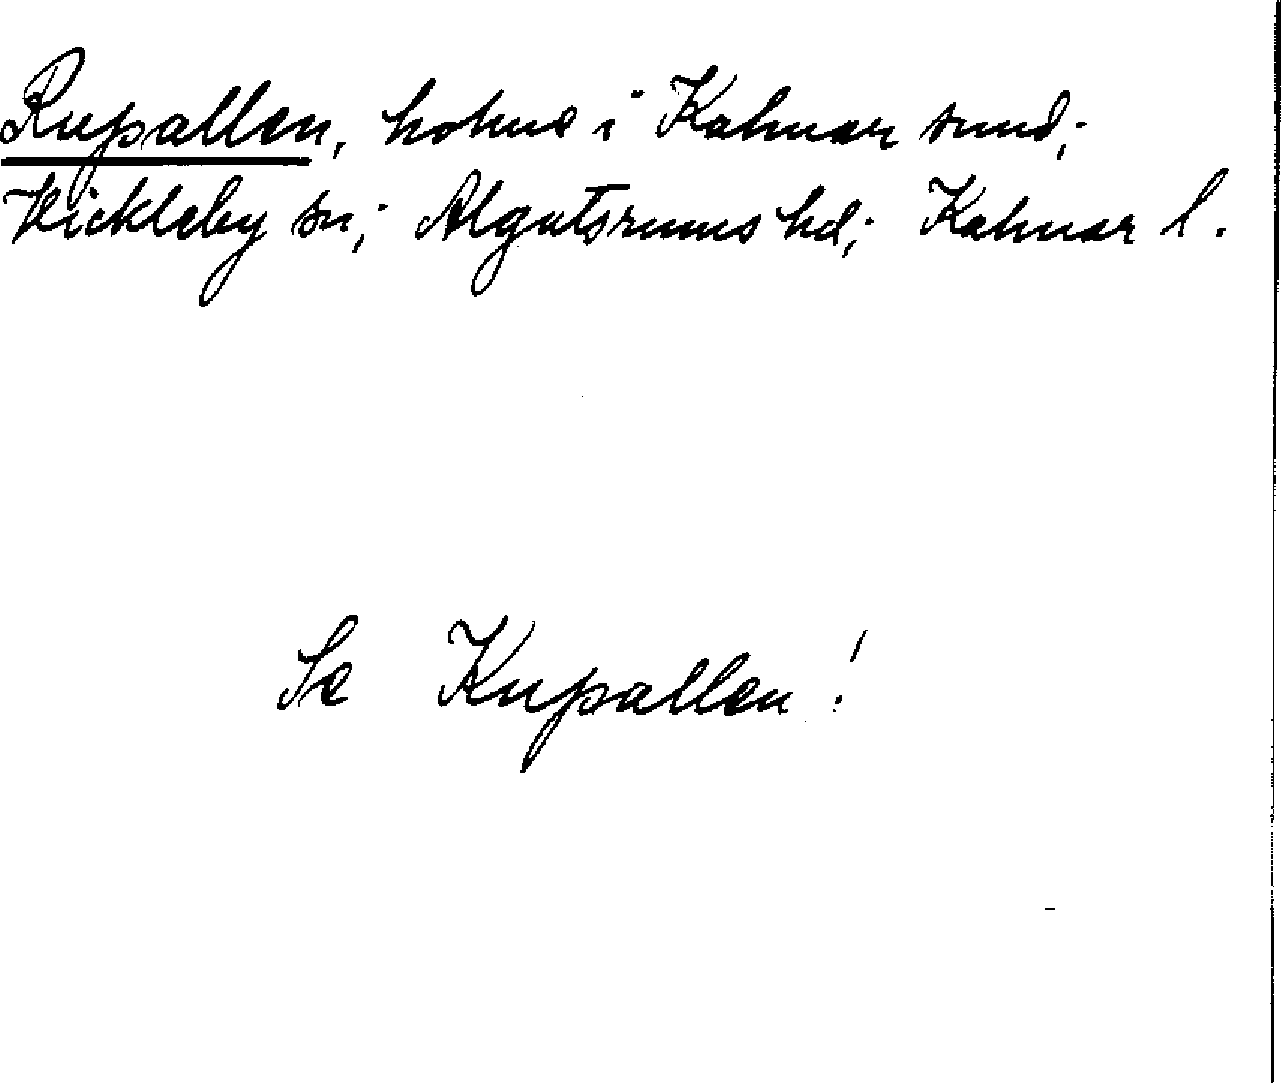 Rupallen, holme i Kalmar sund;
Vickleby sn; Algutsrums hd; Kalmar l.
Se Kupallen!